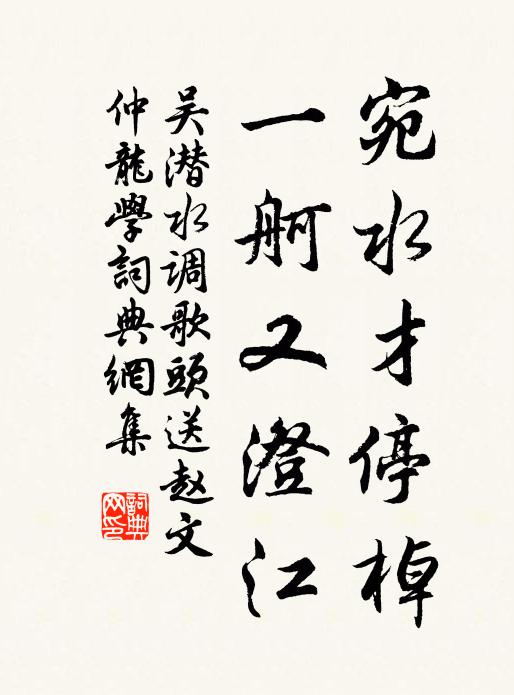 宛水才停棹
一舸又澄江
吴潜水调歌头送赵文
仲龍學詞典網集
詞典網印